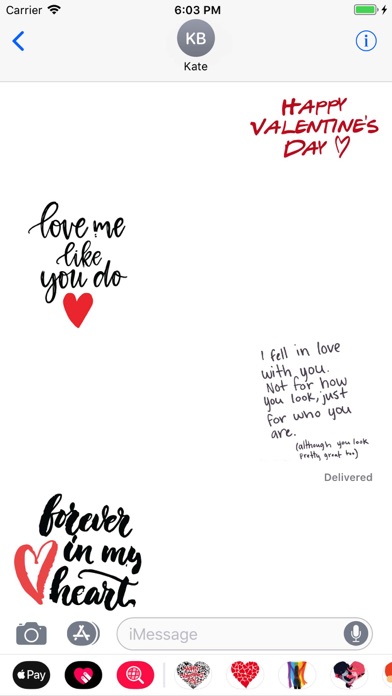 Carrier 6:03 PM
KB
Kate
HAPPY
VALENTINE'S
DAY
love me
like
you do
I fell in love
with you.
Not for how
you look, just
for who you
are.
(although you look
pretty great too)
Delivered
forever
in my
heart
iMessage
Pay